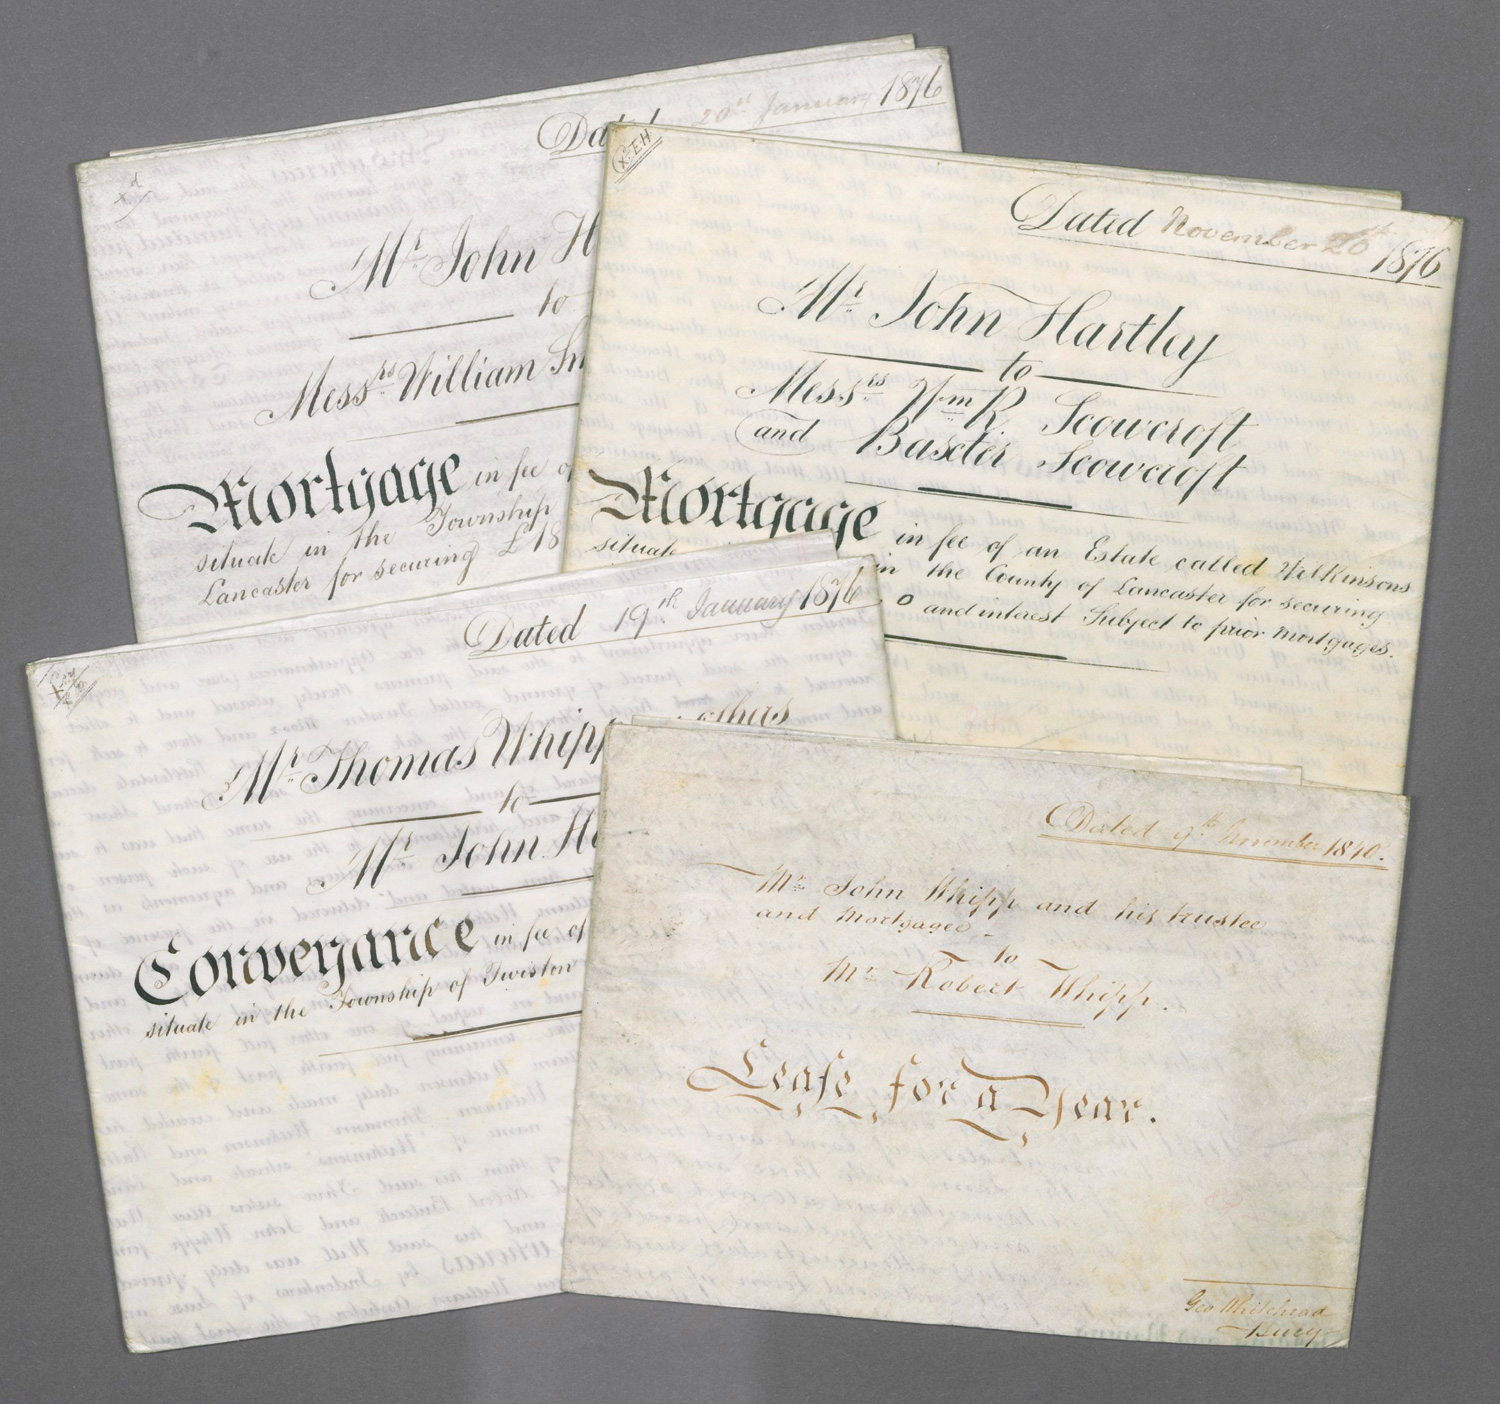 Dated 20th January 1876
Mr. John H
to
Messrs. William
Mortgage in fee of
situate in the Township
Lancaster for securing £18
Dated November 20th 1876
Mr. John Hartley
to
Messrs Wm. R. Scowcroft
and Baxter Scowcroft
Mortgage in fee of an Estate called Wilkinsons
situate in the County of Lancaster for securing
0 and interest Subject to prior mortgages.
Dated 19th January 1876
Mr. Thomas Whipp others
to
Mr. John Ha
Conveyance in fee of
situate in the Township of Twiston
Dated 9th November 1840.
Mr. John Whipp and his trustee
and Mortgagee
to
Mr. Robert Whipp.
Lease for a Year.
Geo Whitehead
Bury